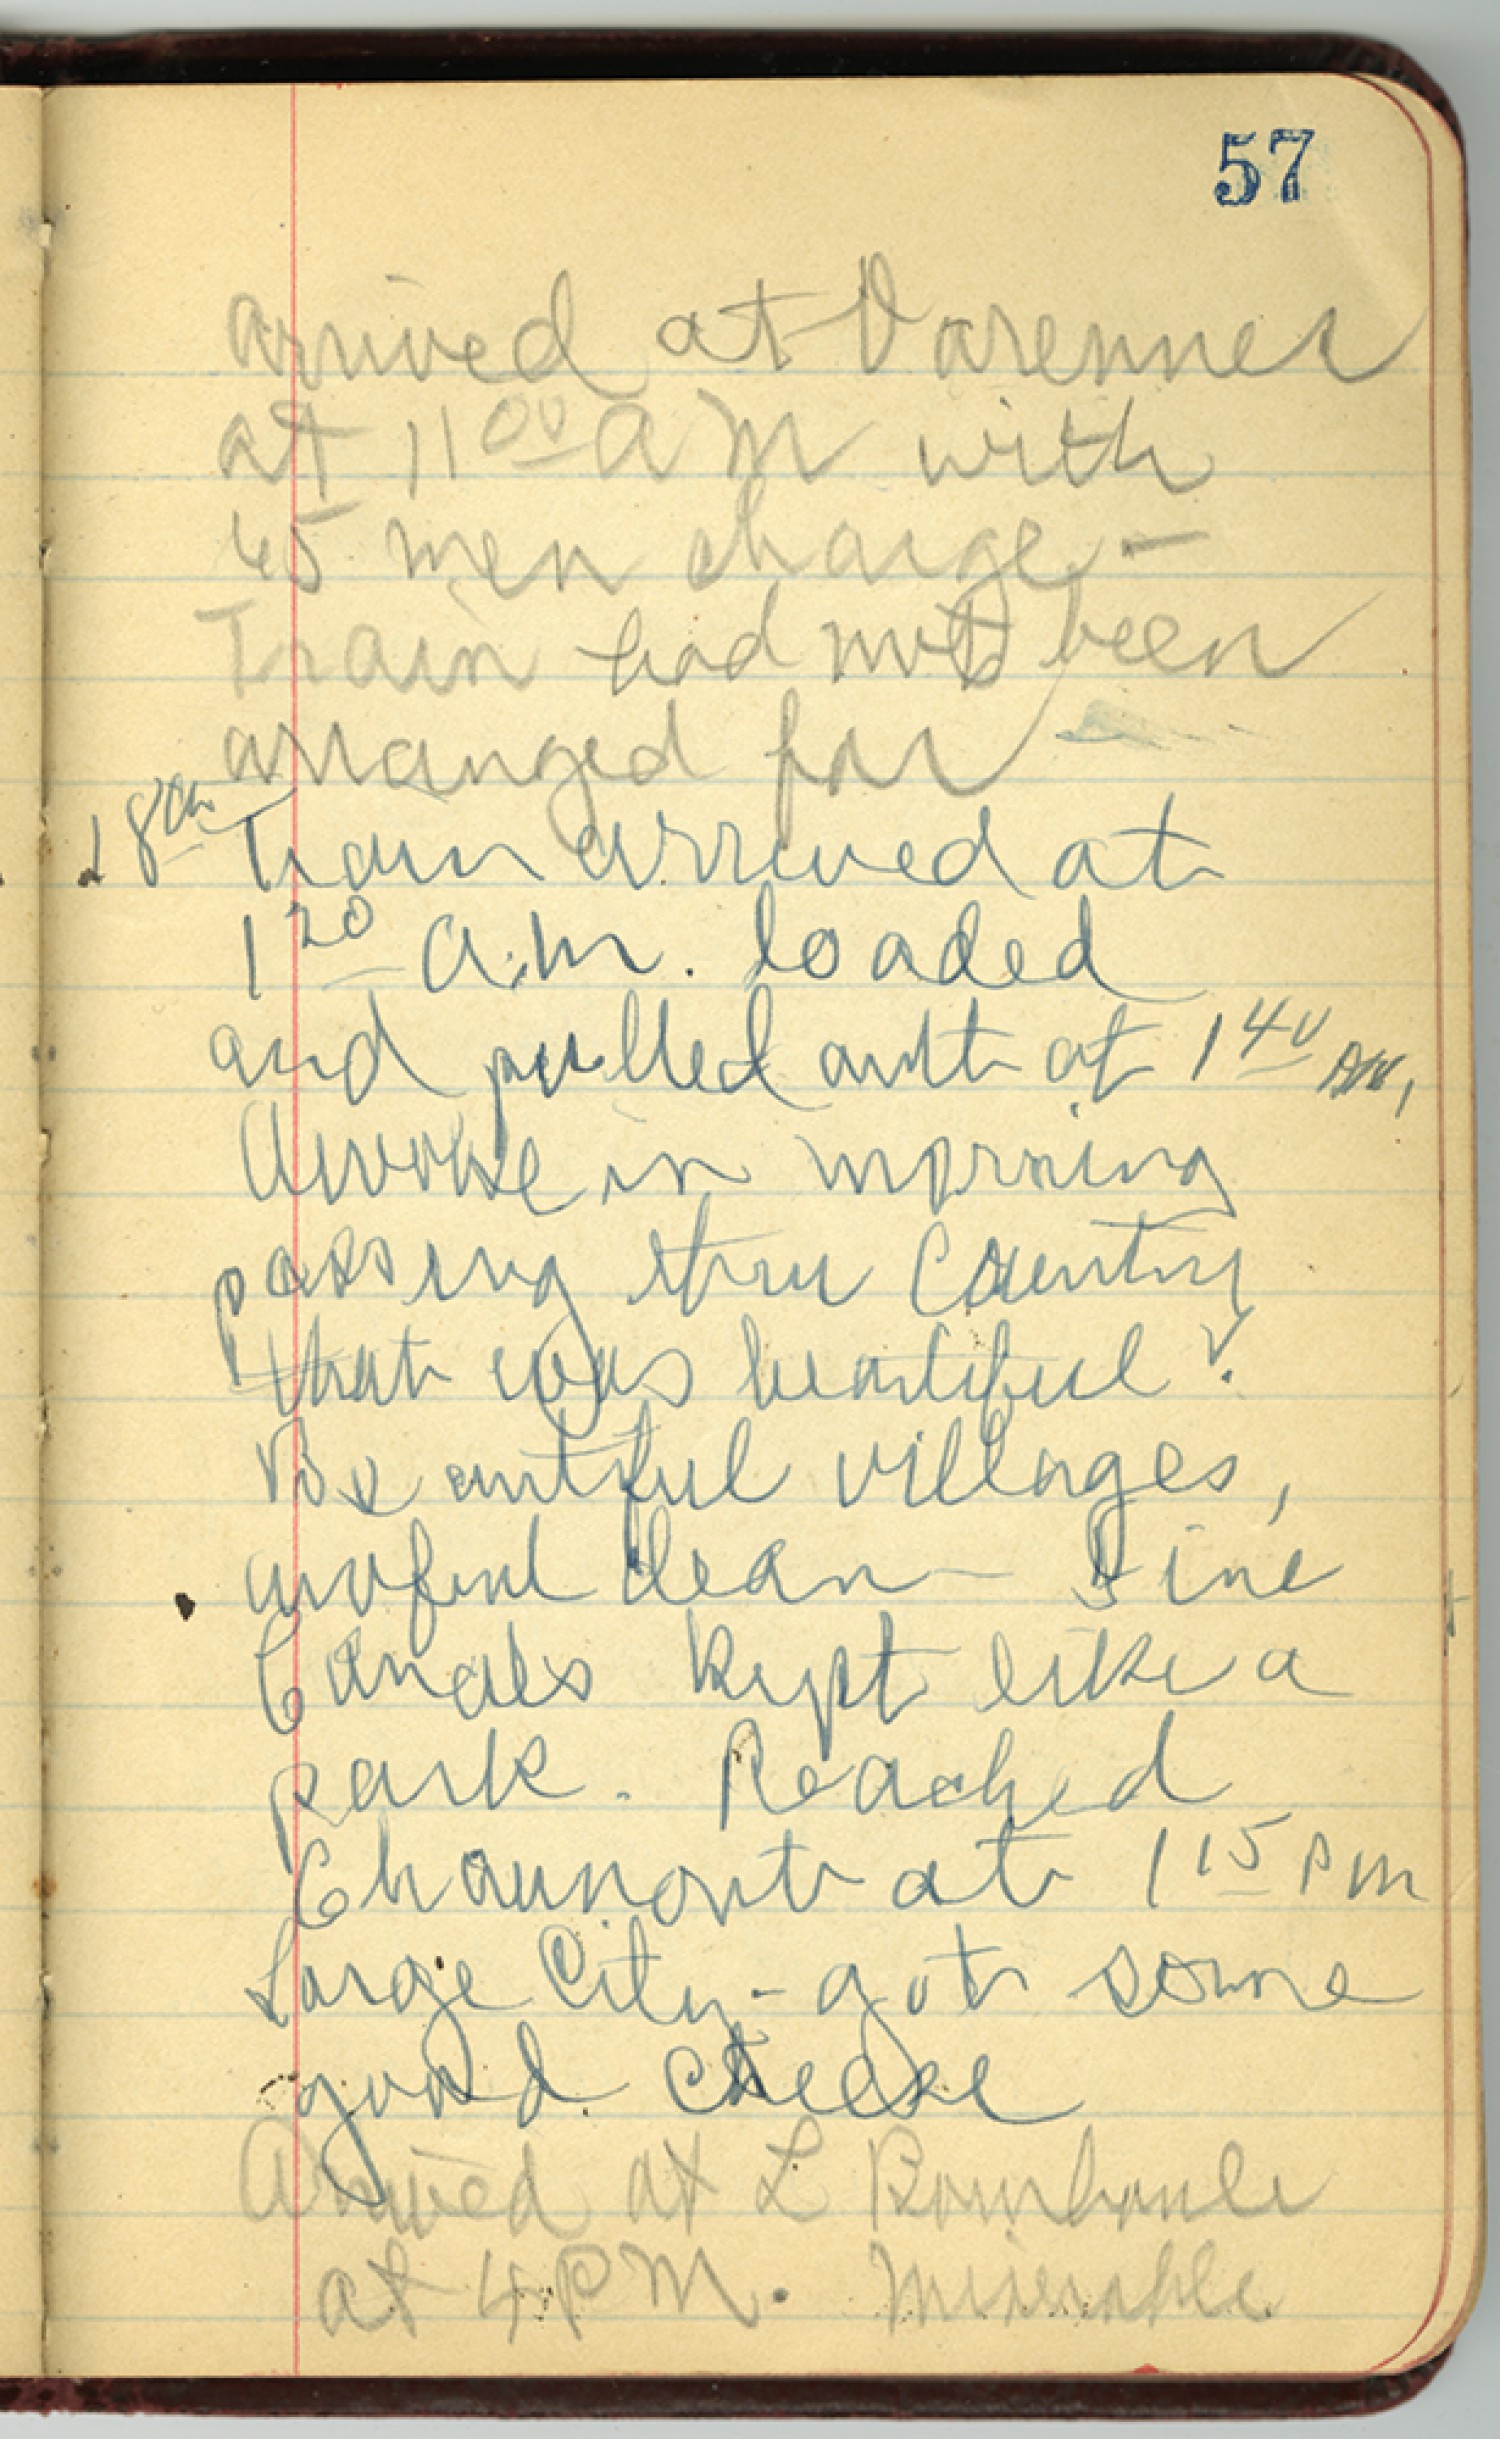 57
arrived at Varennes
at 11 00 A M with
45 men charge -
Train had not been
arranged for
18th Train arrived at
1 20 a.m. loaded
and pulled out at 1 40 AM,
Awoke in morning
passing thru Country
that was beautiful.
Beautiful villages,
awful clean - Fine
Canals kept like a
park. Reached
Chaumont at 1 15 P M
Large City - got some
good cheese
Arrived at L
at 4 P M. Miserable